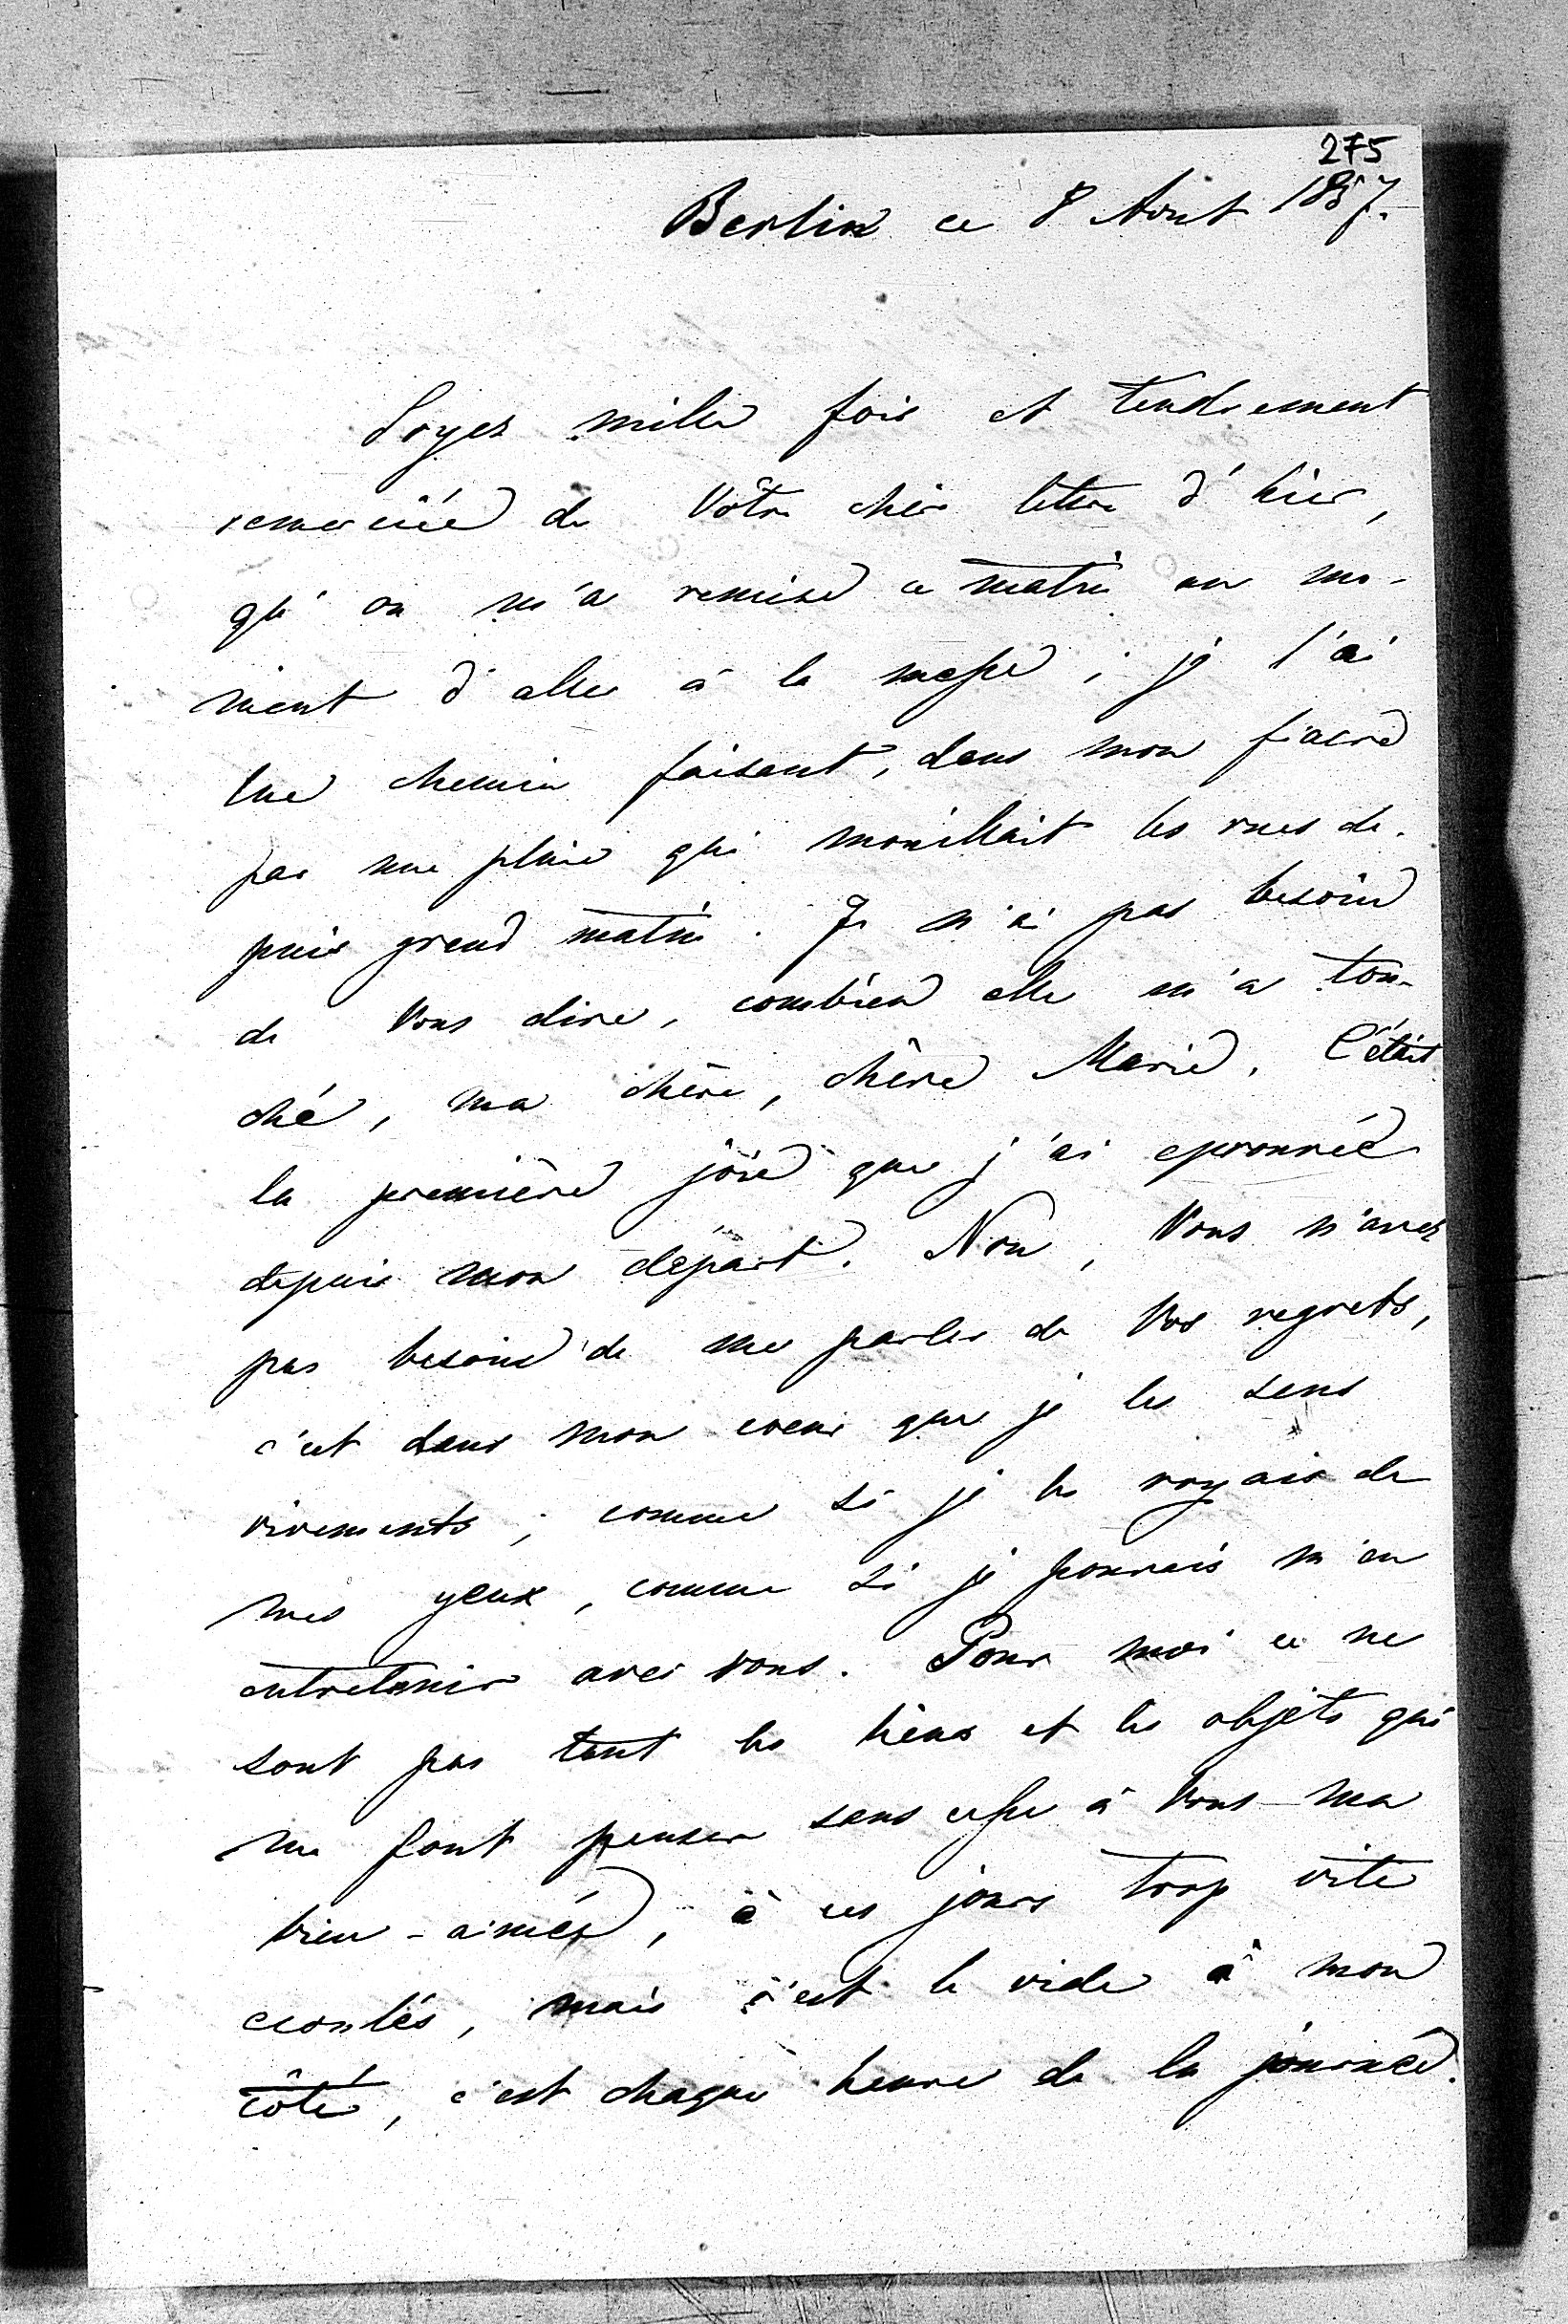 275
Berlin ce 8 Aout 1857.
Soyez mille fois et tendrement
remerciée de Vôtre chère lettre d'hier,
qu'on m'a remise ce matin au mo-
ment d'aller à la messe ; je l'ai
lue chemin faisant, dans mon fiacre
par une pluie qui mouillait les rues de-
puis grand matin. Je n'ai pas besoin
de Vous dire, combien elle m'a tou-
ché, ma chère, chère Marie. C'était
la première joie que j'ai eprouvée
depuis mon départ. Non, Vous n'avez
pas besoin de me parler de Vos regrets,
c'est dans mon coeur que je les sens
vivements ; comme si je les voyais de
mes yeux, comme si je pouvais m'en
entretenir avec vous. Pour moi ce ne
sont pas tant les lieux et les objets qui
me font penser sans cesse à Vous ma
bien-aimée, à ces jours trop vite
ecoulés, mais c'est le vide à mon
côté, c'est chaque heure de la journée.